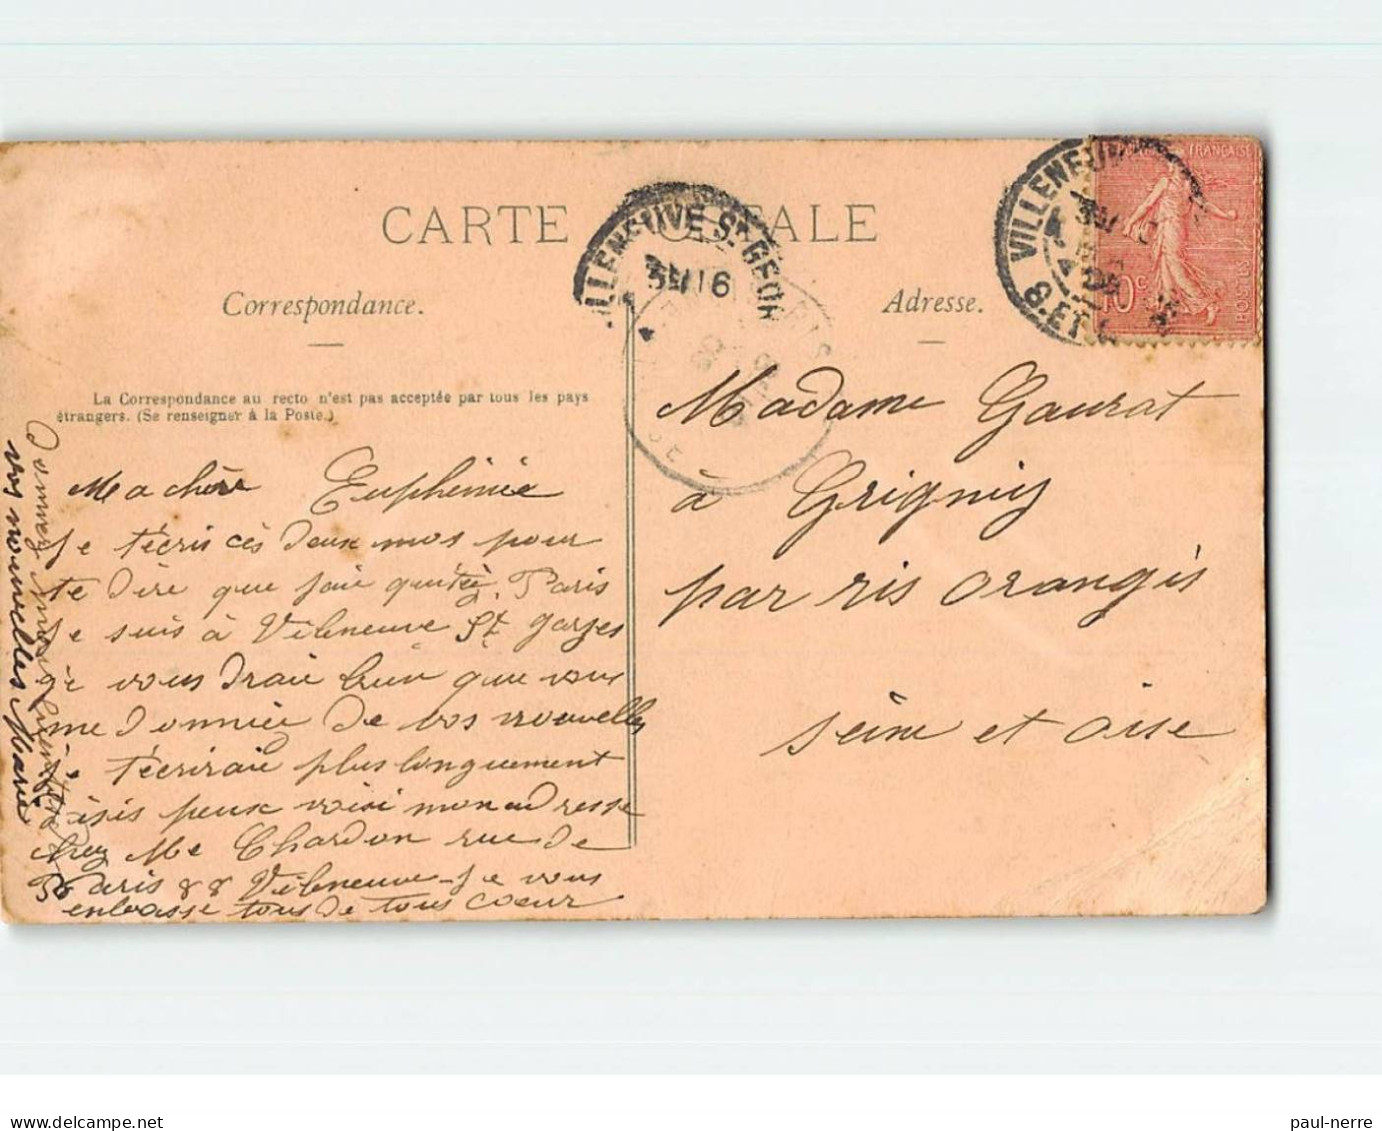 CARTE POSTALE
VILLENEUVE St GEOR
VILLENEUV
S. ET
FRANÇAISE
10c
POSTES
Correspondance.
Adresse.
La Correspondance au recto n'est pas acceptée par tous les pays
étrangers. (Se renseigner à la Poste.)
Ma chère Euphémie
Je técris cès deux mos pour
te dire que jaie quitée Paris
Je suis à Vileneuve St Gorges
je vous draie bien que vous
me donniée de vos nouvelles
je técriraie plus longuement
isis peux voisi mon adresse
chez Me Chardon rue de
Paris 88 Vileneuve Je vous
enbrasse tous de tous coeur
vos nouvelles Marie
Madame Gaurat
à Grigniy
par ris orangis
seine et oise
paul-nerre